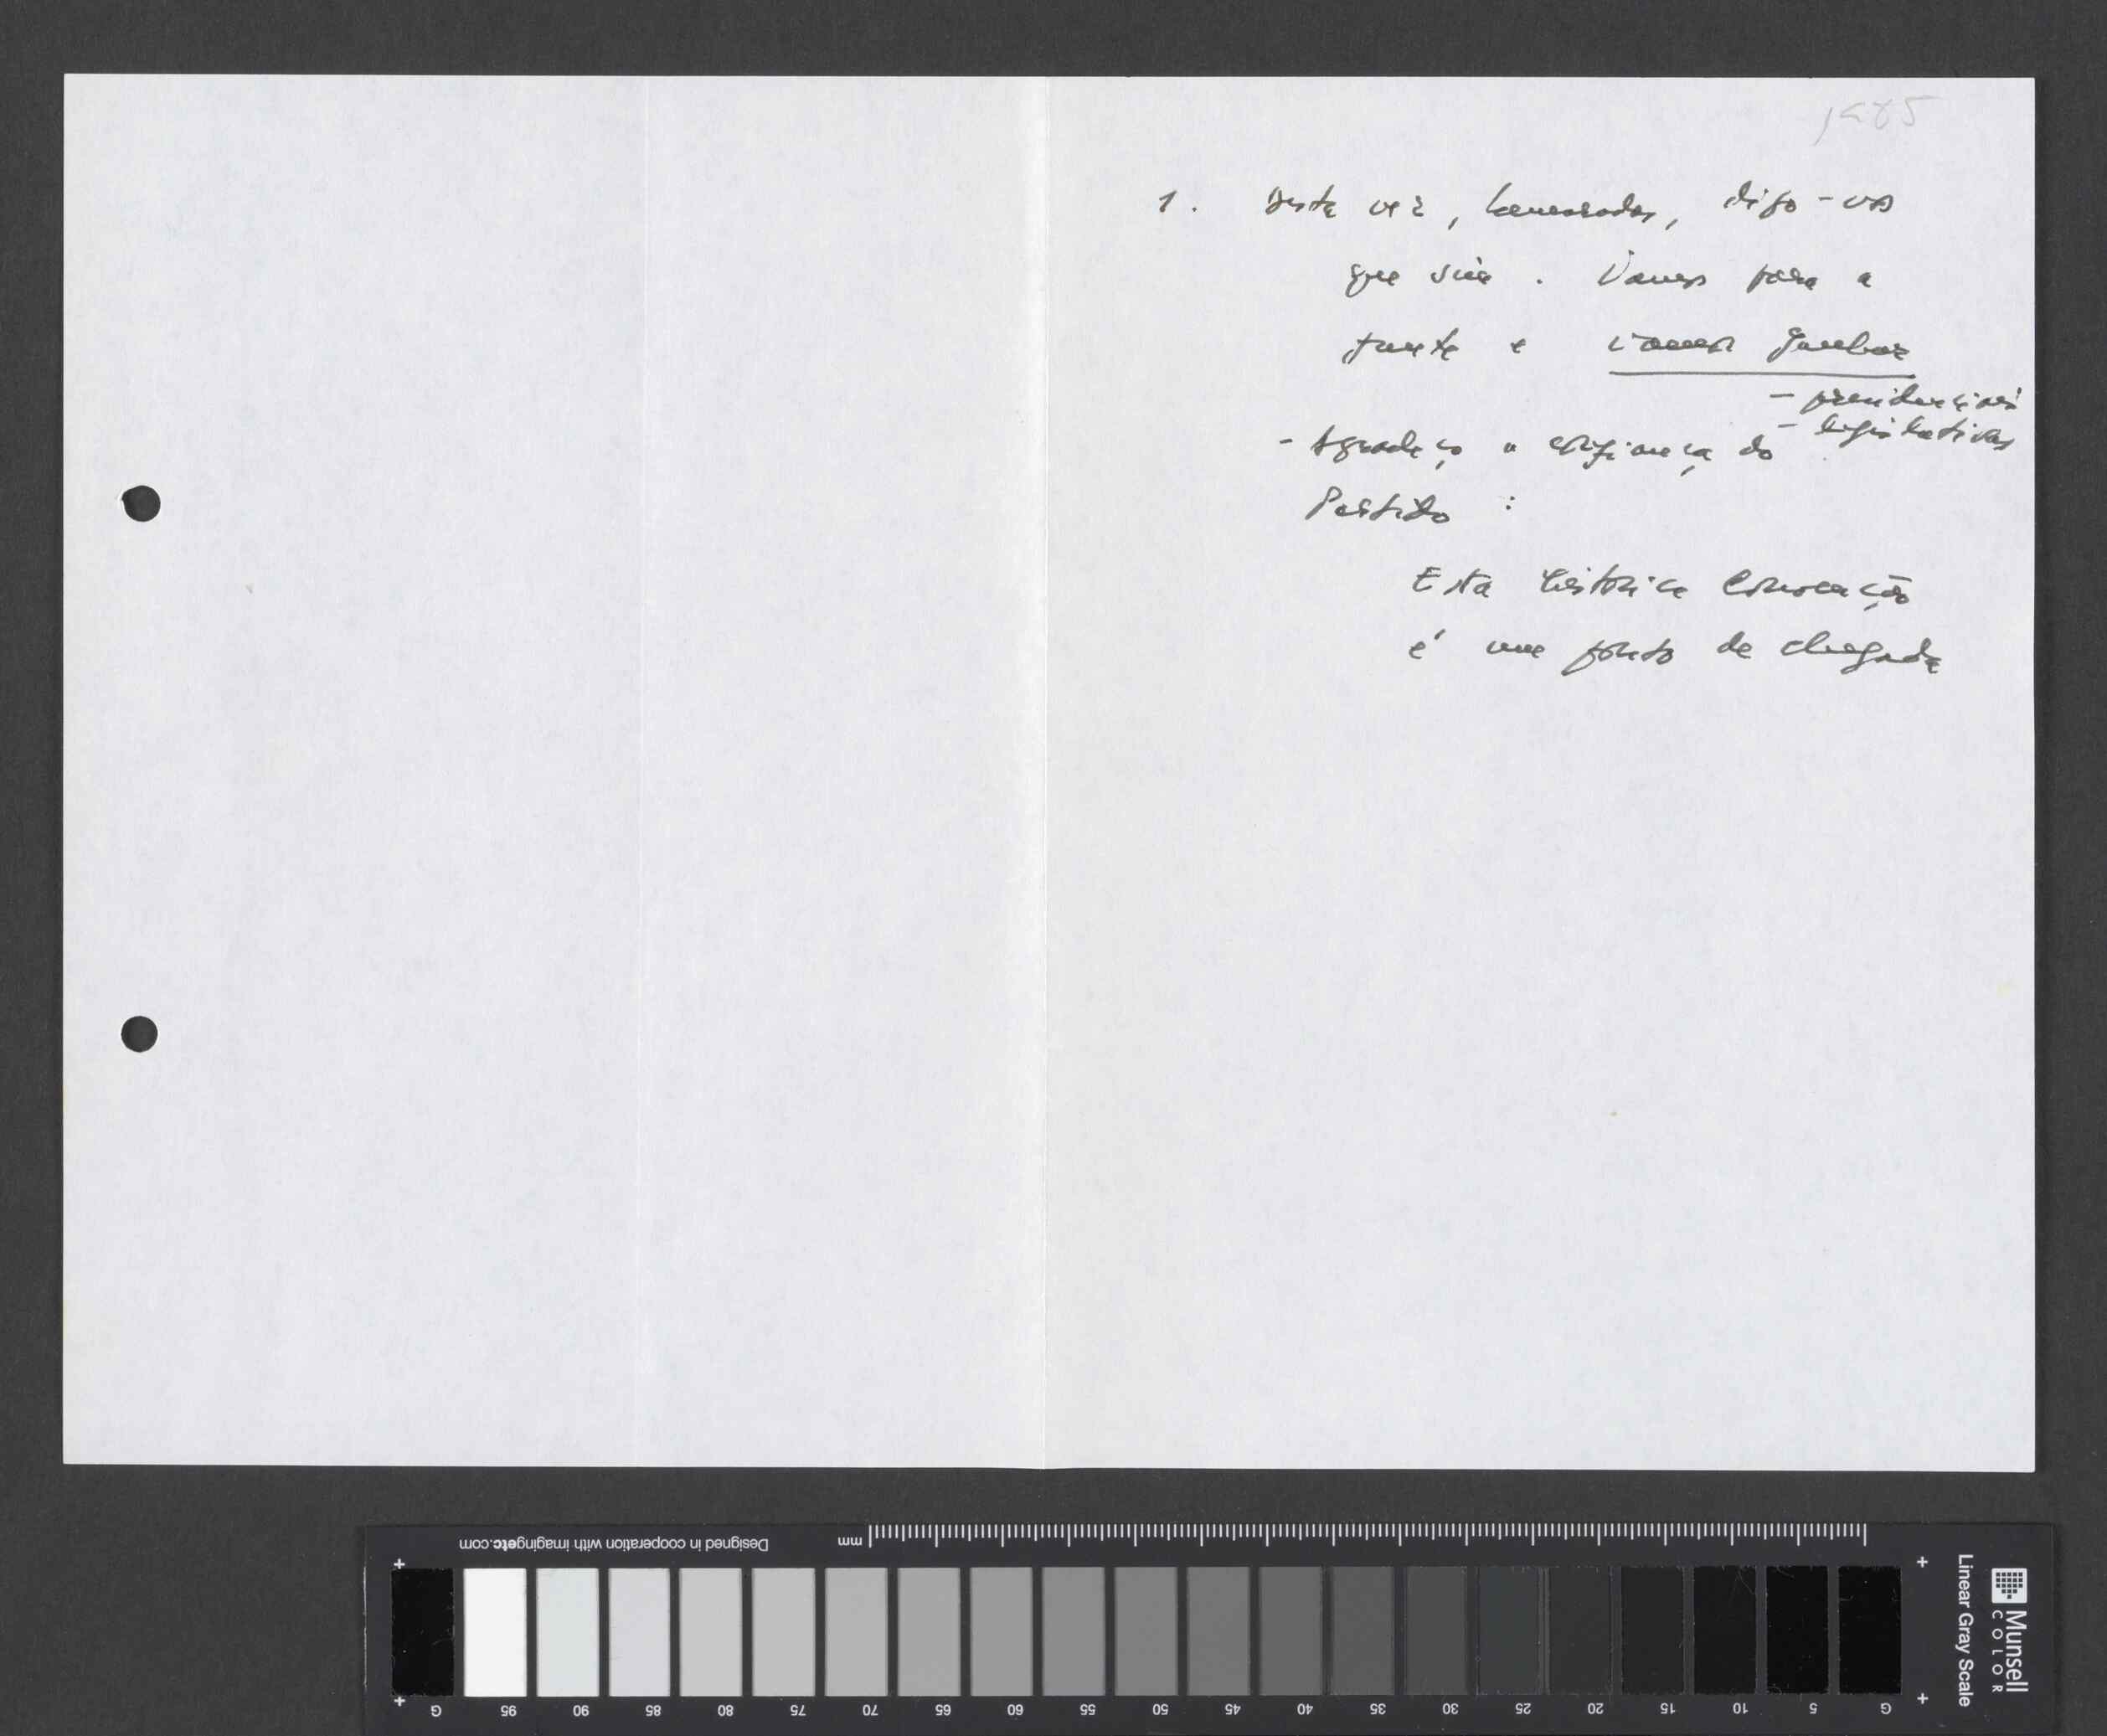 1985
1. Desta vez, Camaradas, digo-vos
que sim. Vamos para a
frente e vamos ganhar
- presidenciais
- legislativas
- Agradeço a confiança do
Partido :
Esta histórica Convenção
é um ponto de chegada
Designed in cooperation with imagingetc.com
mm
G 95 90 85 80 75 70 65 60 55 50 45 40 35 30 25 20 15 10 5 G
Munsell
COLOR
Linear Gray Scale